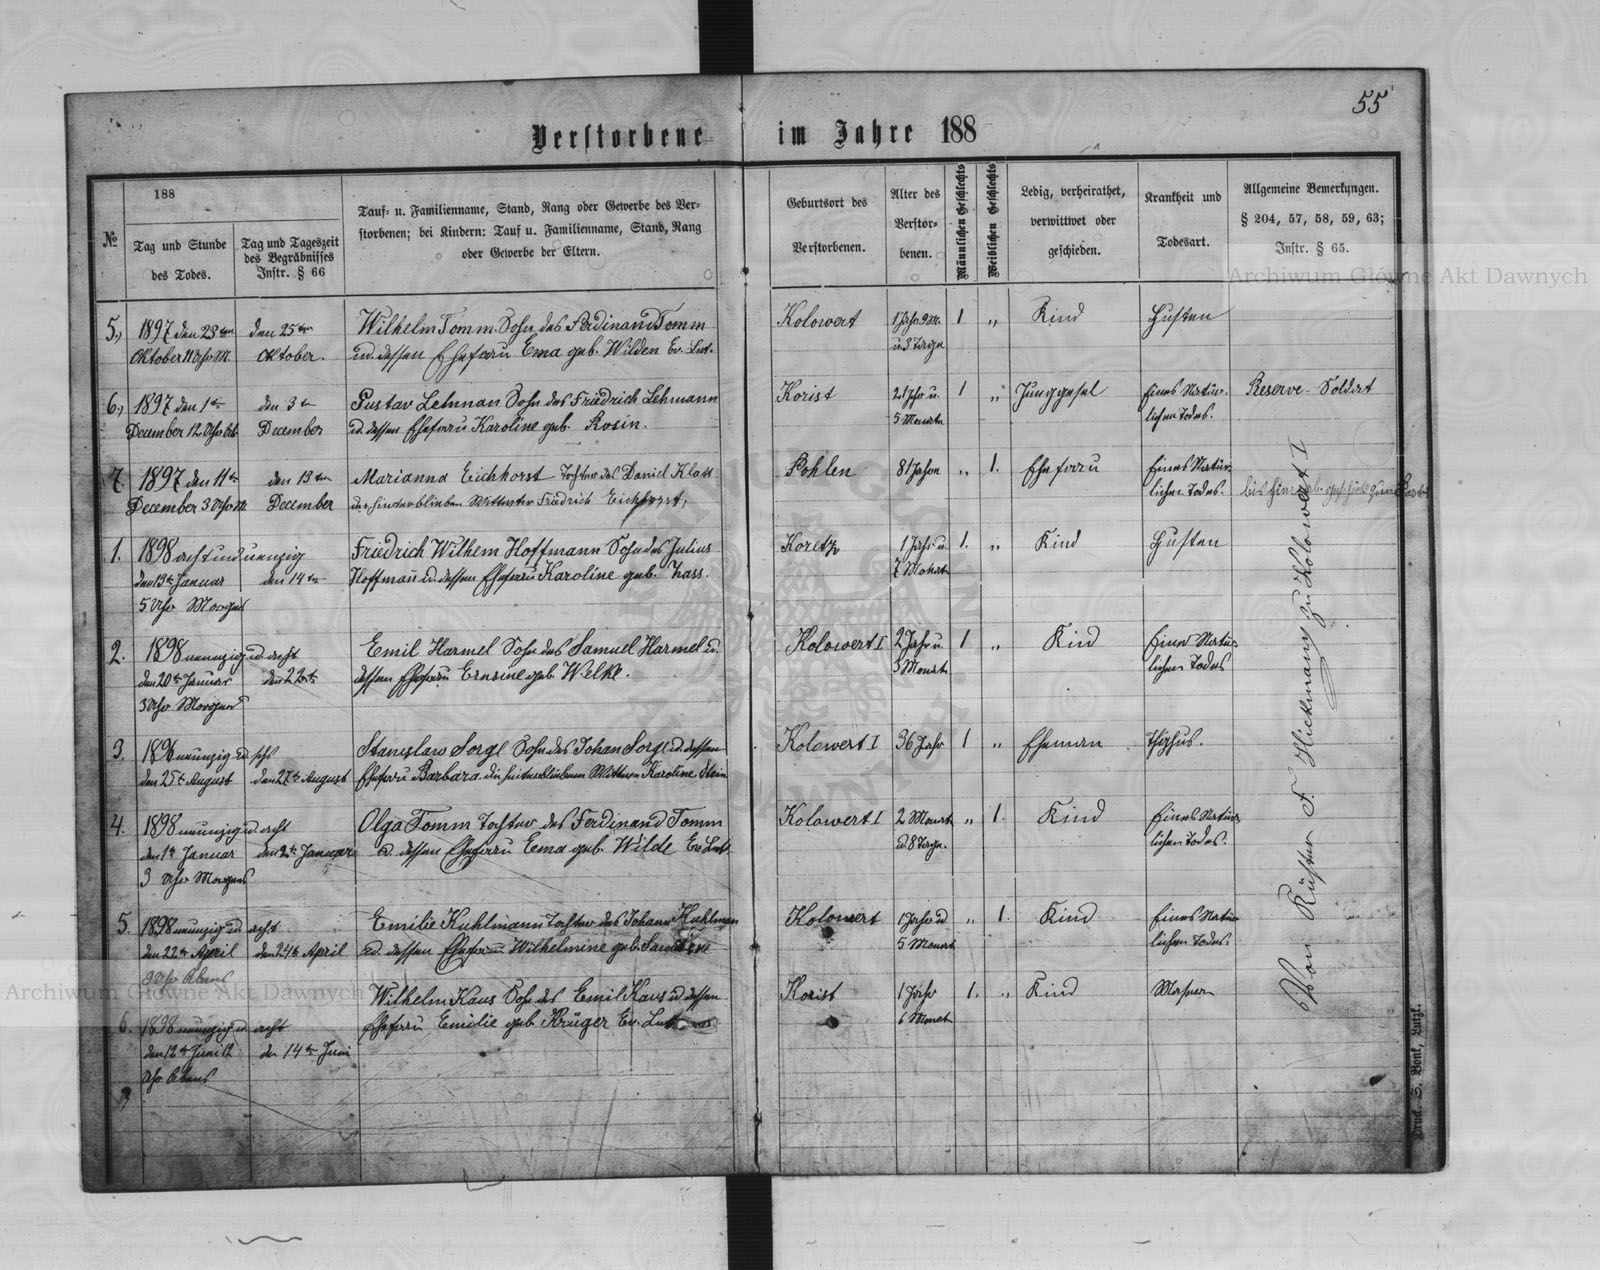 55
Verstorbene im Jahre 188
№
188
Tag und Stunde
des Todes.
Tag und Tageszeit
des Begräbnisses
Instr. § 66
Tauf- u. Familienname, Stand, Rang oder Gewerbe des Ver-
storbenen; bei Kindern: Tauf u. Familienname, Stand, Rang
oder Gewerbe der Eltern.
Geburtsort des
Verstorbenen.
Alter des
Verstor-
benen.
Männlichen Geschlechts
Weiblichen Geschlechts
Ledig, verheirathet,
verwittwet oder
geschieden.
Krankheit und
Todesart.
Allgemeine Bemerkungen.
§ 204, 57, 58, 59, 63;
Instr. § 65.
Archiwum Główne Akt Dawnych
5., 1897 den 23ten den 25ten Wilhelm Tomm. Sohn des Ferdinand Tomm Kolowert 1 Jahr 9 M. 1 „ Kind Husten
Oktober 11 Uhr M. Oktober. u d. dessen Ehefrau Ema geb. Wilden Ev. Lut. u 3 Tage
6., 1897 den 1ten den 3ten Gustav Lehman Sohn des Friedrich Lehmann Korist 21 Jhr u. 1 „ Junggesel Eines Natür- Reserve-Soldat
December 12 Uhr Ab. December u d. dessen Ehefrau Karoline geb. Rosin. 5 Monate lichen Todes.
7. 1897 den 11ten den 13ten Marianna Eichhorst Tochter des Daniel Klatt Pohlen 81 Jahre „ 1. Ehefrau Eines Natür-
December 3 Uhr M. December Friedrich Eichhorst, lichen Todes.
1. 1898 acht und neunzig Friedrich Wilhem Hoffmann Sohn des Julius Koretz 1 Jahr u 1. „ Kind Husten
den 13ten Januar den 14ten Hoffman u d. dessen Ehefrau Karoline geb. Zass. 7 Monat
5 Uhr Morgen
2. 1898 neunzig u d. acht Emil Harmel Sohn des Samuel Harmel u d. Kolowert I 2 Jahr u. 1 „ Kind Eines Natür-
den 20ten Januar den 22ten dessen Ehefrau Ernsine geb. Welke. 3 Monate lichen Todes
3 Uhr Morgens
3. 1896 neunzig u d. sechs Stanislaw Sorge Sohn des Johan Sorge u d. dessen Kolowert I 36 Jahr 1 „ Eheman Thyhus.
den 25ten August den 27ten August Ehefrau Barbara die hinterbliebenen Wittwen Karoline Stein
4. 1898 neunzig u d. acht Olga Tomm Tochter des Ferdinand Tomm Kolowert I 2 Monat „ 1. Kind Eines Natür-
den 1ten Januar den 2ten Januar u d. dessen Ehefrau Ema geb. Wilde Ev Lut. u d 8 Tage. lichen Todes.
3 Uhr Morgens
5. 1898 neunzig u d acht Emilie Kuhlmann Tochter des Johann Kuhlman Kolowert 1 Jahr u d „ 1. Kind Eines Natür-
den 22ten April den 24ten April u d. dessen Ehefrau Wilhelmine geb. 5 Monat lichen Todes.
9 Uhr Abens
Wilhelm Kaus Sohn des Emil Kaus u d dessen Korist 1 Jahr 1. „ Kind Masern
6. 1898 neunzig u d acht Ehefrau Emilie geb. Krüger Ev. Lut. 6 Monat
den 12ten Juni 12 den 14ten Juni
Uhr Abens
Von Küster F. Hickmann zu Kolowert I
Archiwum Główne Akt Dawnych
Druck S. Bonk, Lutzk.